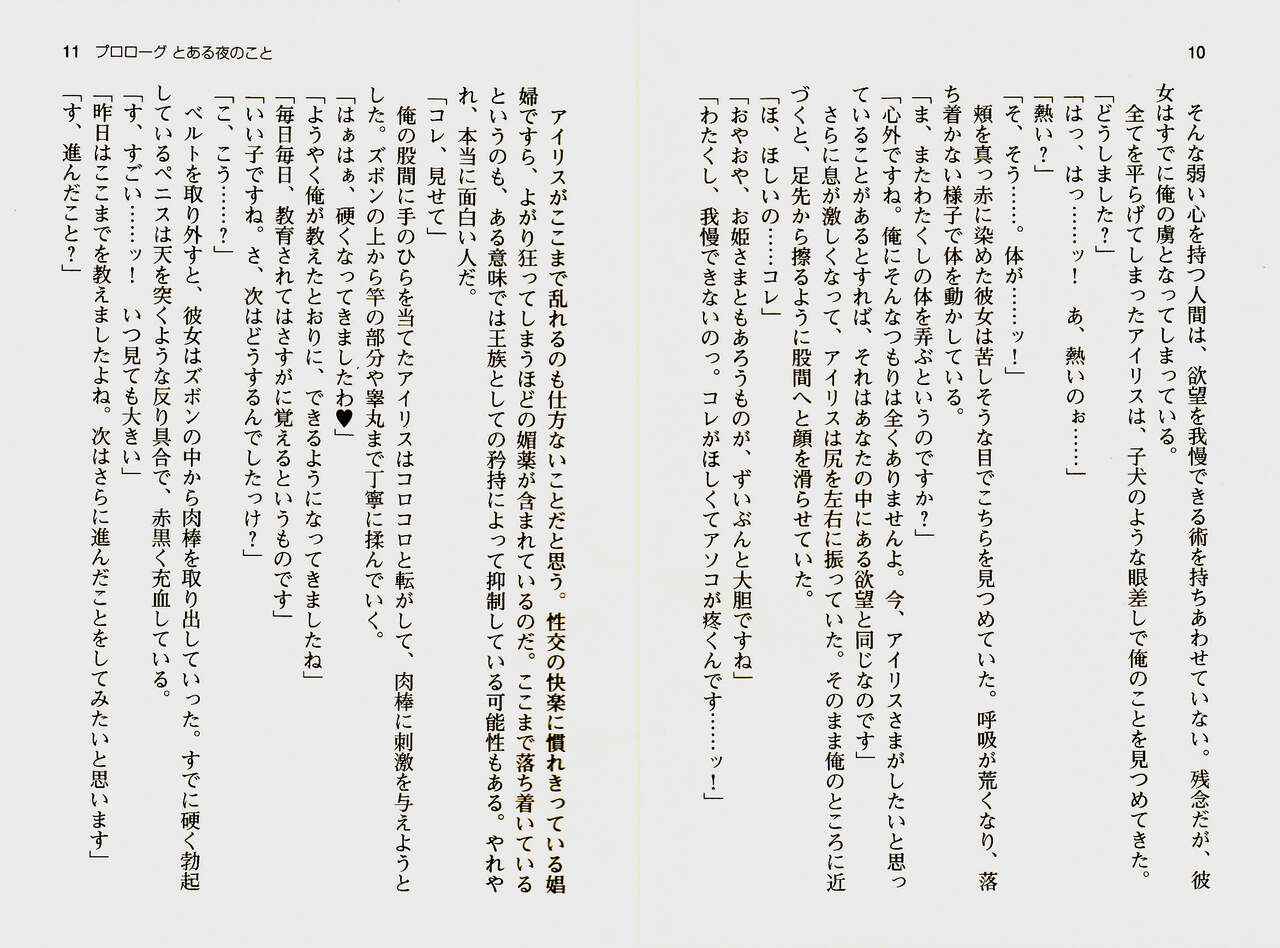 10
そんな弱い心を持つ人間は、欲望を我慢できる術を持ちあわせていない。残念だが、彼
女はすでに俺の虜となってしまっている。
全てを平らげてしまったアイリスは、子犬のような眼差しで俺のことを見つめてきた。
「どうしました?」
「はっ、はっ……ッ! あ、熱いのぉ……」
「熱い?」
「そ、そう……。体が……ッ!」
頬を真っ赤に染めた彼女は苦しそうな目でこちらを見つめていた。呼吸が荒くなり、落
ち着かない様子で体を動かしている。
「ま、またわたくしの体を弄ぶというのですか?」
「心外ですね。俺にそんなつもりは全くありませんよ。今、アイリスさまがしたいと思っ
ていることがあるとすれば、それはあなたの中にある欲望と同じなのです」
さらに息が激しくなって、アイリスは尻を左右に振っていた。そのまま俺のところに近
づくと、足先から擦るように股間へと顔を滑らせていた。
「ほ、ほしいの……コレ」
「おやおや、お姫さまともあろうものが、ずいぶんと大胆ですね」
「わたくし、我慢できないのっ。コレがほしくてアソコが疼くんです……ッ!」
11 プロローグ とある夜のこと
アイリスがここまで乱れるのも仕方ないことだと思う。性交の快楽に慣れきっている娼
婦ですら、よがり狂ってしまうほどの媚薬が含まれているのだ。ここまで落ち着いている
というのも、ある意味では王族としての矜持によって抑制している可能性もある。やれや
れ、本当に面白い人だ。
「コレ、見せて」
俺の股間に手のひらを当てたアイリスはコロコロと転がして、肉棒に刺激を与えようと
した。ズボンの上から竿の部分や睾丸まで丁寧に揉んでいく。
「はぁはぁ、硬くなってきましたわ♥」
「ようやく俺が教えたとおりに、できるようになってきましたね」
「毎日毎日、教育されてはさすがに覚えるというものです」
「いい子ですね。さ、次はどうするんでしたっけ?」
「こ、こう……?」
ベルトを取り外すと、彼女はズボンの中から肉棒を取り出していった。すでに硬く勃起
しているペニスは天を突くような反り具合で、赤黒く充血している。
「す、すごい……ッ! いつ見ても大きい」
「昨日はここまでを教えましたよね。次はさらに進んだことをしてみたいと思います」
「す、進んだこと?」